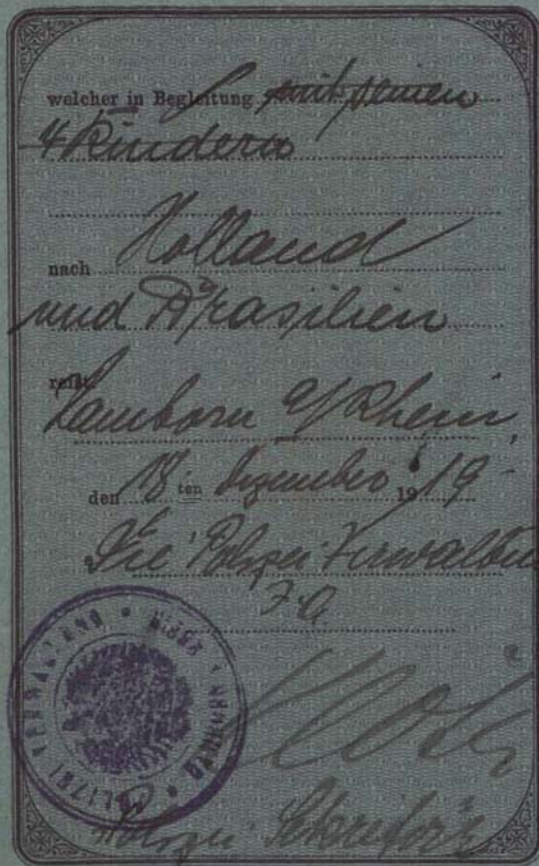 welcher in Begleitung mit seinen
4 Kindern
nach Holland
und Brasilien
reist.
Hamborn a/Rhein,
den 18 ten Dezember 1919
Die Polizei-Verwaltung
J. A.
POLIZEI VERWALTUNG * HAMBORN *
Polizei-Sekretär